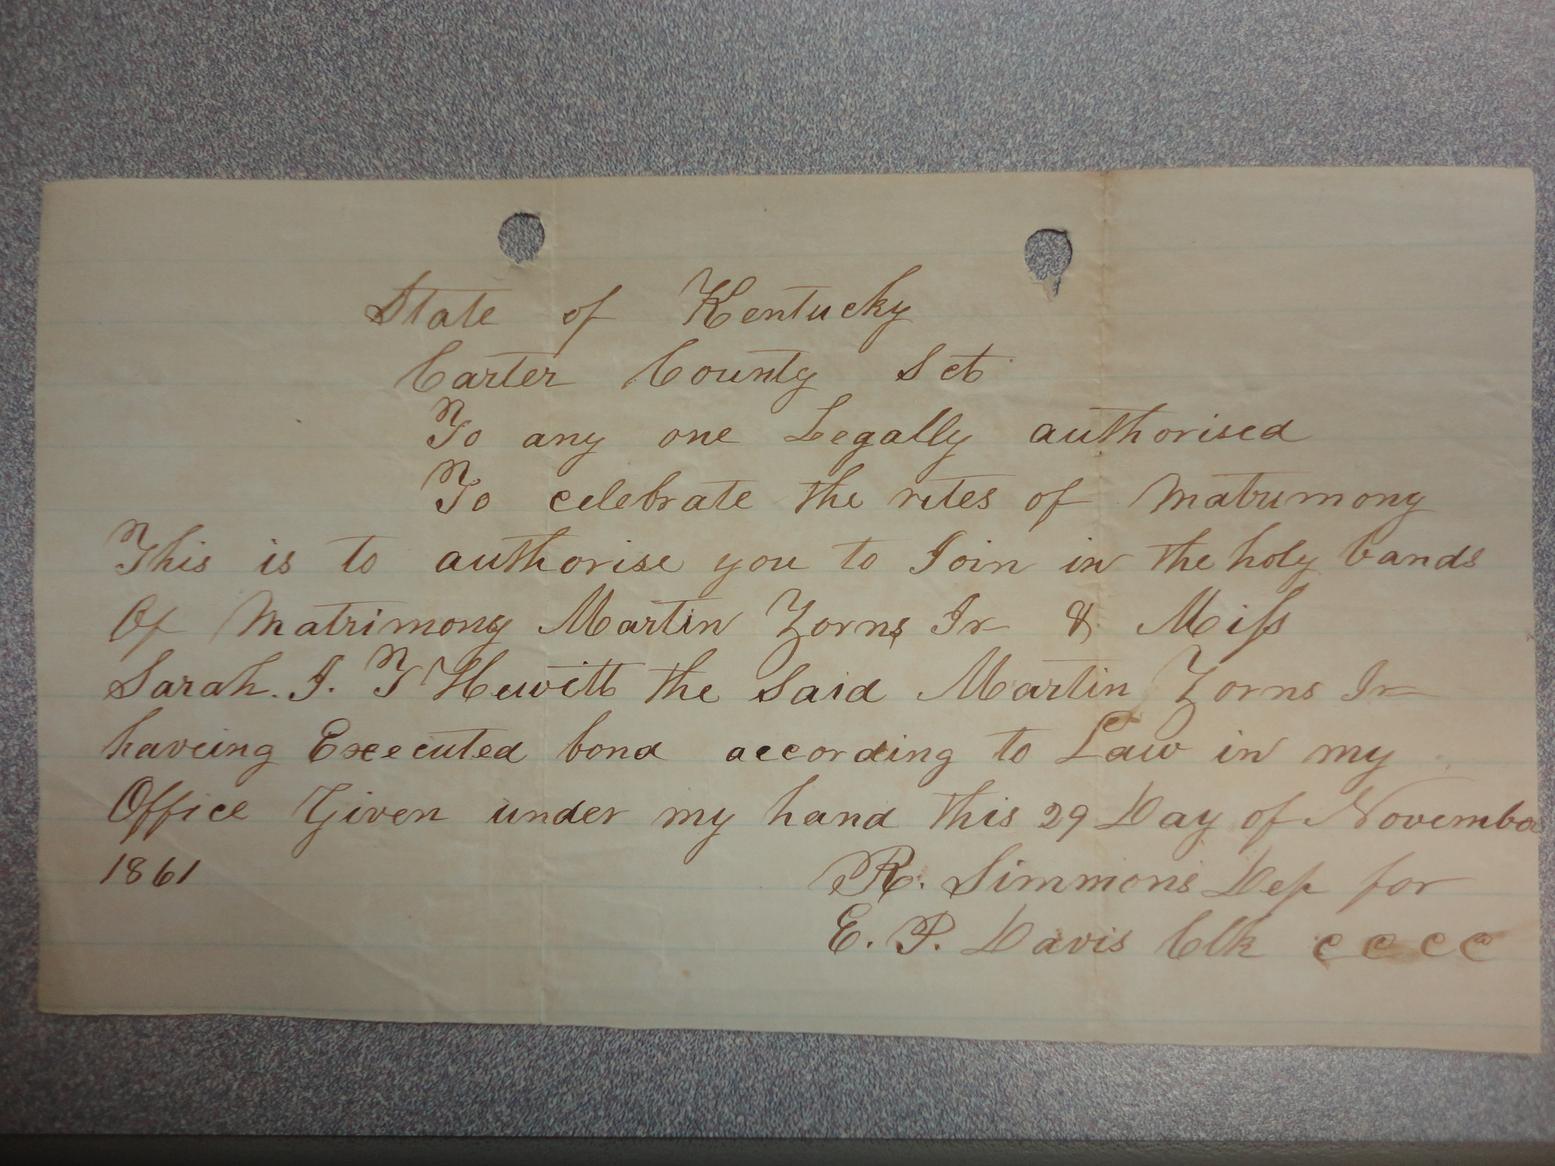 State of Kentucky
Carter County Sct
To any one Legally authorised
To celebrate the rites of Matrimony
This is to authorise you to Join in the holy bands
Of Matrimony Martin Zorns Jr & Miss
Sarah. J. T Hewitt the Said Martin Zorns Jr
haveing Executed bond according to Law in my
Office Given under my hand this 29 Day of November
1861
R. Simmons Dep for
E. P. Davis Clk C C C C